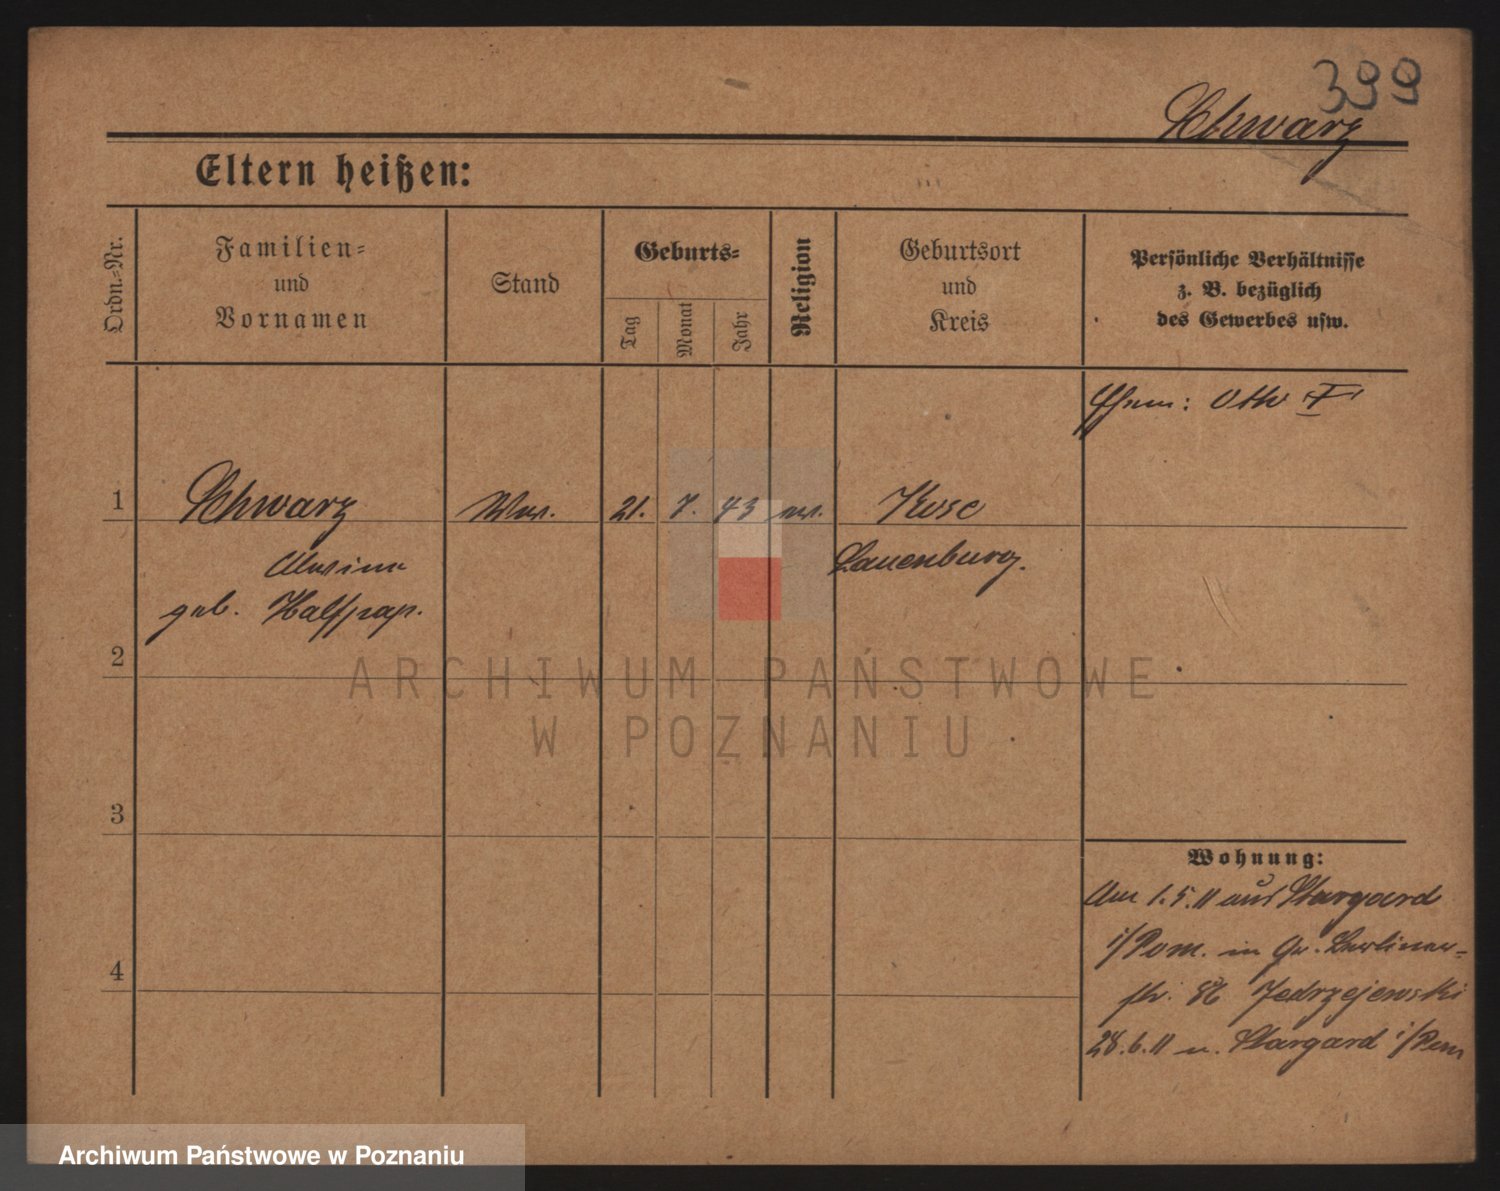 399
Schwarz
Eltern heißen:
Ordn.=Nr.
Familien=
und
Vornamen
Stand
Geburts=
Tag
Monat
Jahr
Religion
Geburtsort
und
Kreis
Persönliche Verhältnisse
z. B. bezüglich
des Gewerbes usw.
Ehem: Otto †
1
Schwarz
Ww.
21. 7. 43
ev.
Kose
Alwine
Lauenburg.
geb. Halfpap.
2
3
4
Wohnung:
Am 1.5.11 aus Stargard
i/Pom. in Gr. Berliner=
str. Jedrzejewski
28.6.11 n. Stargard i/Pom
ARCHIWUM PAŃSTWOWE
W POZNANIU
Archiwum Państwowe w Poznaniu